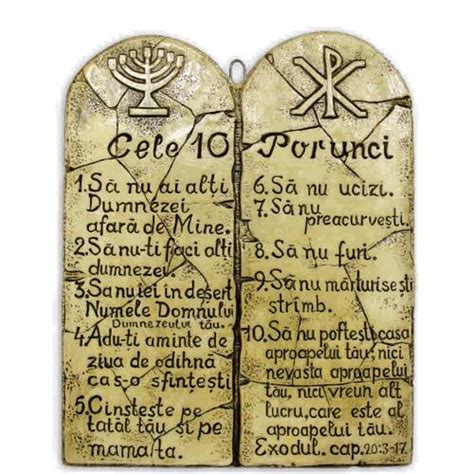 Cele 10 Porunci
1. Să nu ai alți
Dumnezei
afară de Mine.
2. Să nu-ți faci alți
dumnezei
3. Sa nu iei in deșert
Numele Domnului
Dumnezeului tău.
4. Adu-ti aminte de
ziua de odihnă
ca s-o sfințești
5. Cinsteste pe
tatăl tău și pe
mama ta.
6. Să nu ucizi.
7. Să nu
preacurvești.
8. Să nu furi.
9. Să nu mărturisești
strîmb.
10. Să nu poftești casa
aproapelui tău, nici
nevasta aproapelui
tău, nici vreun alt
lucru, care este al
aproapelui tău.
Exodul. cap. 20:3-17